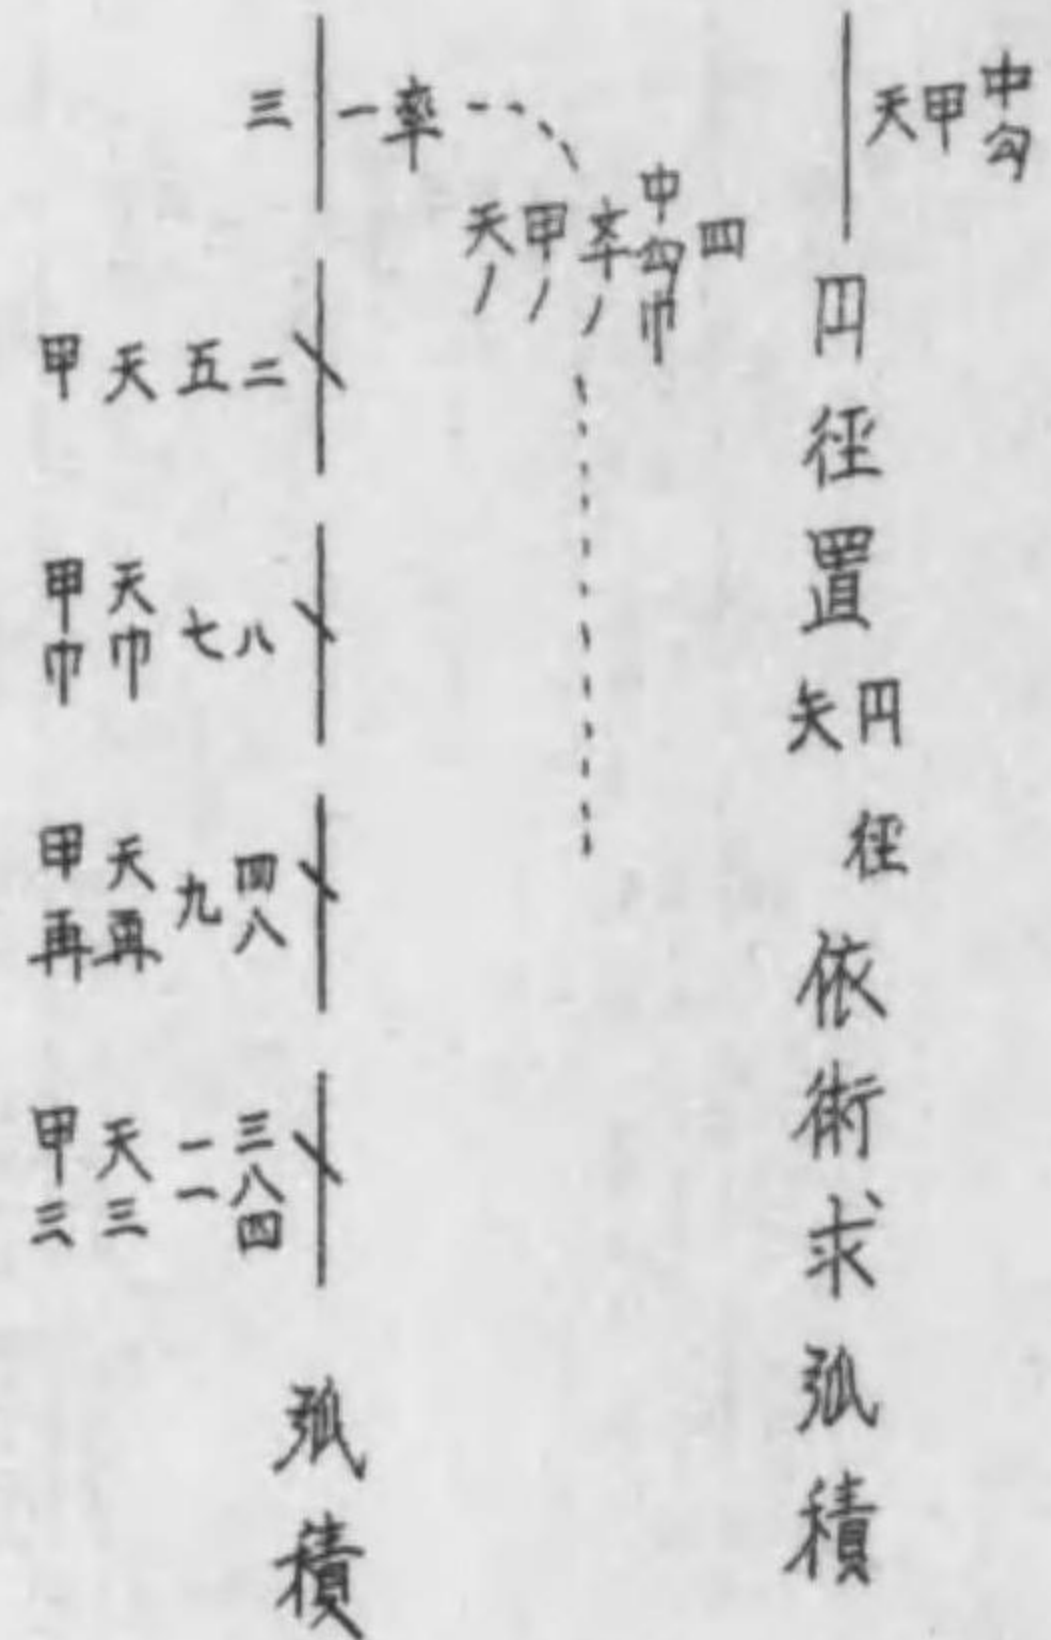 中勾
甲
天
円径置
円径
矢
依術求弧積
四
中勾巾
率ノ
甲ノ
天ノ
一率
三
二
五
天
甲
八
七
天巾
甲巾
四八
九
天再
甲再
三八四
一一
天三
甲三
弧積